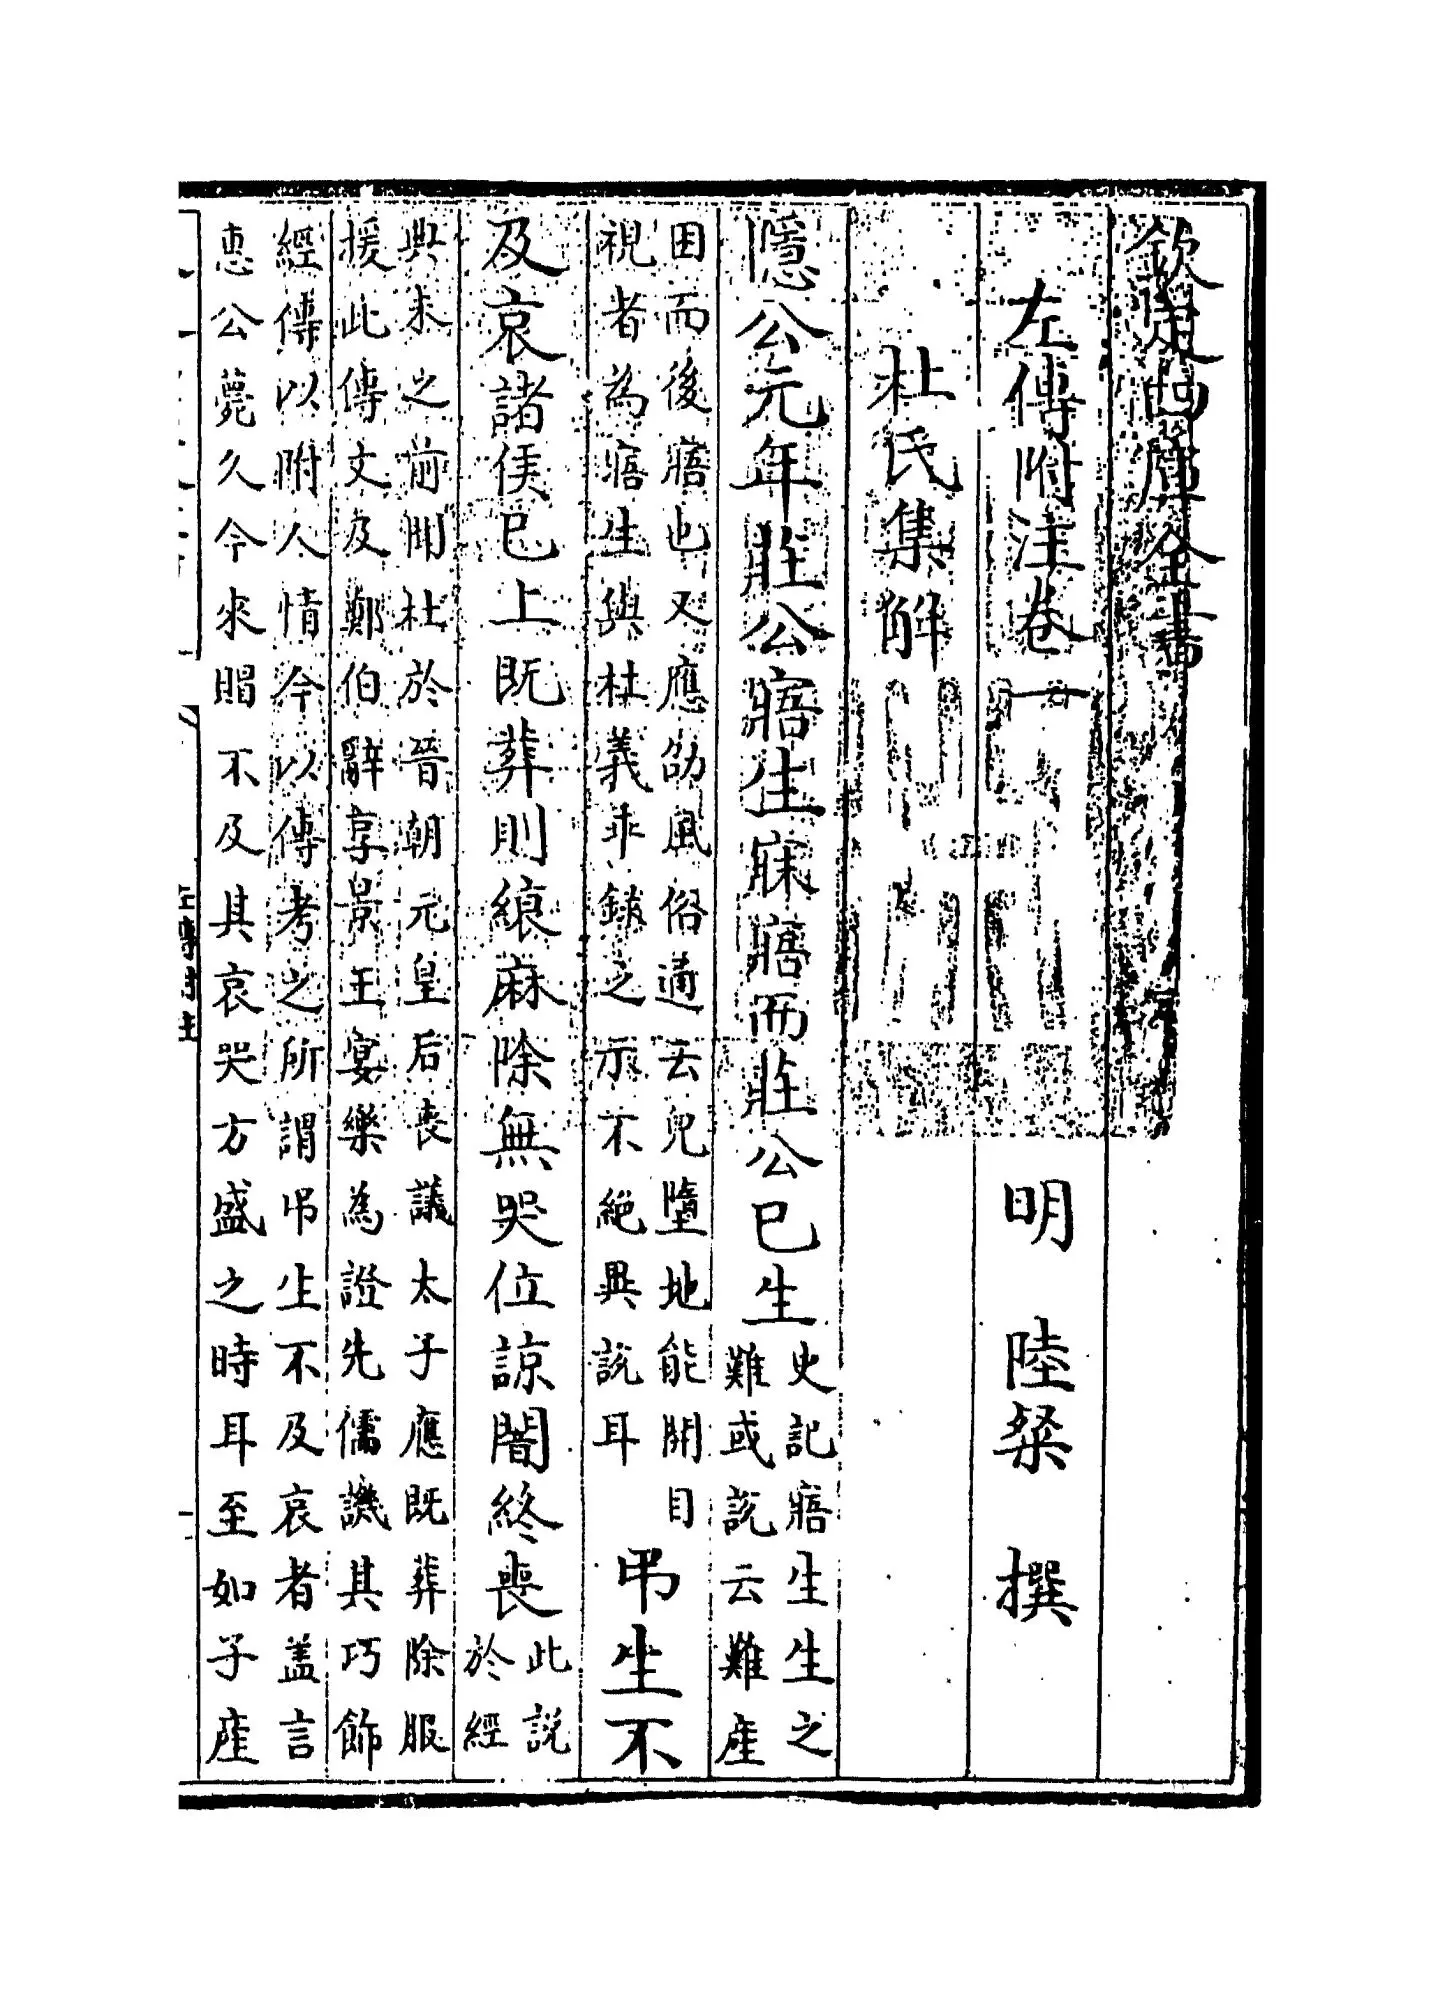 欽定四庫全書
左傳附注卷一
明 陸粲 撰
杜氏集解
隱公元年莊公寤生寐寤而莊公已生
史記寤生生之
難或説云難産
困而後寤也又應劭風俗通云兒墮地能開目
視者為寤生與杜義乖錄之示不絶異説耳
弔生不
及哀諸侯已上既葬則縗麻除無哭位諒闇終喪
此説
於經
典未之前聞杜於晉朝元皇后喪議太子應既葬除服
援此傳文及鄭伯辭享景王宴樂為證先儒譏其巧飾
經傳以附人情今以傳考之所謂弔生不及哀者盖言
惠公薨久今來賵不及其哀哭方盛之時耳至如子產
左傳附注